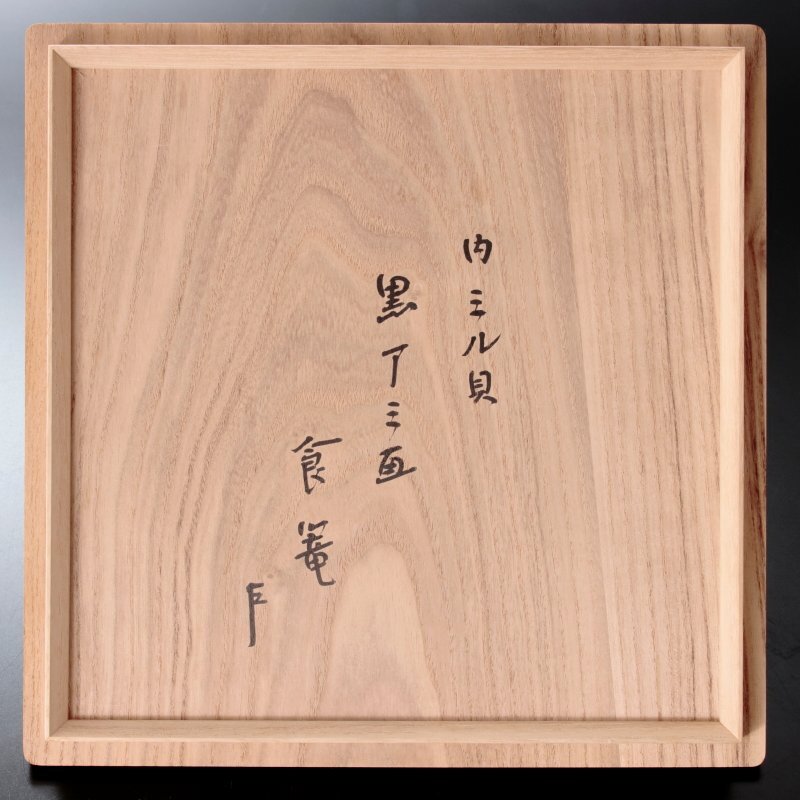 内ミル貝
黒アミ画
食篭